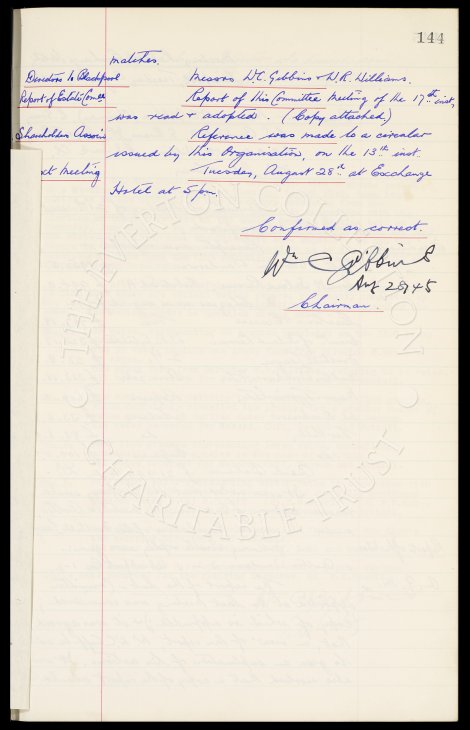 144
matches.
Directors to Blackpool Messrs W.C. Gibbins & W.R. Williams.
Report of Estate Com'ee Report of this Committee Meeting of the 17th inst,
was read & adopted. (Copy attached)
Shareholders Assoc'n Reference was made to a circular
issued by this Organisation, on the 13th inst.
xt Meeting Tuesday, August 28th at Exchange
Hotel at 5 pm.
Confirmed as correct.
Wm C Gibbins
Aug 28/45
Chairman.
THE EVERTON COLLECTION
CHARITABLE TRUST